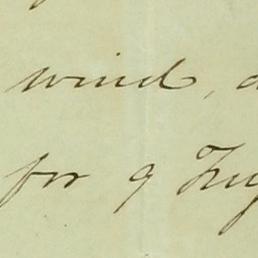 wind,
for 9